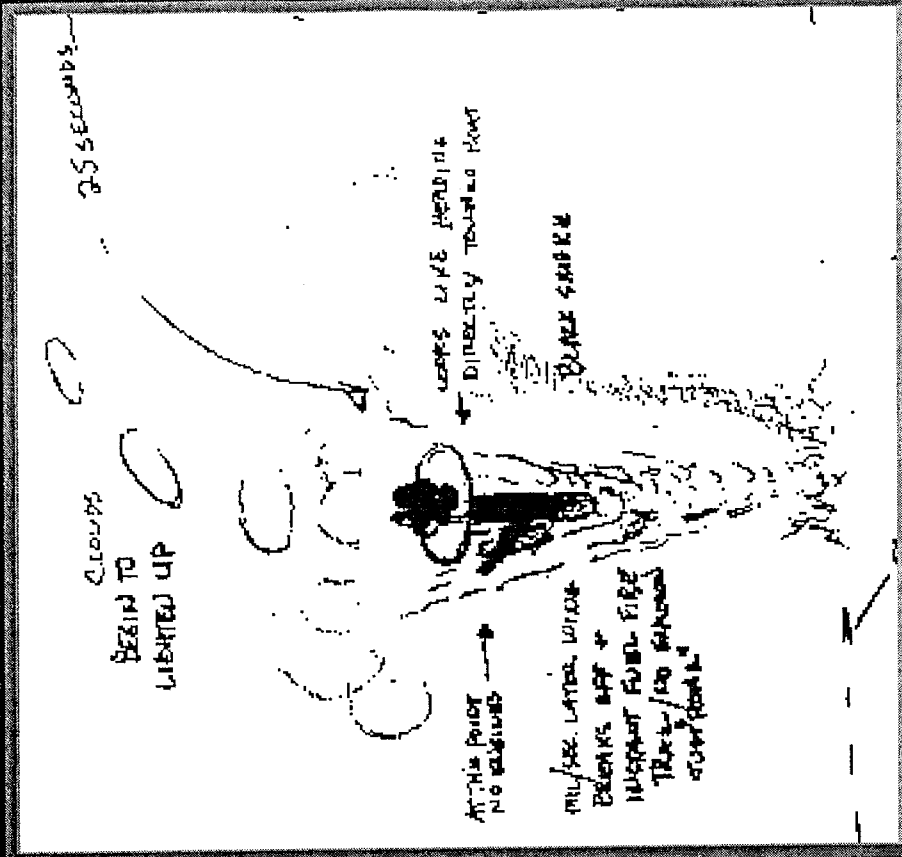 25 SECONDS
CLOUDS
BEGIN TO
LIGHTED UP
LOOKS LIKE HEADING
DIRECTLY TOWARD BOAT
BLACK SMOKE
AT THIS POINT
NO ENGINES
MIL/SEC. LATER WING
BREAKS OFF +
INSTANT FUEL FIRE
TRAIL / NO